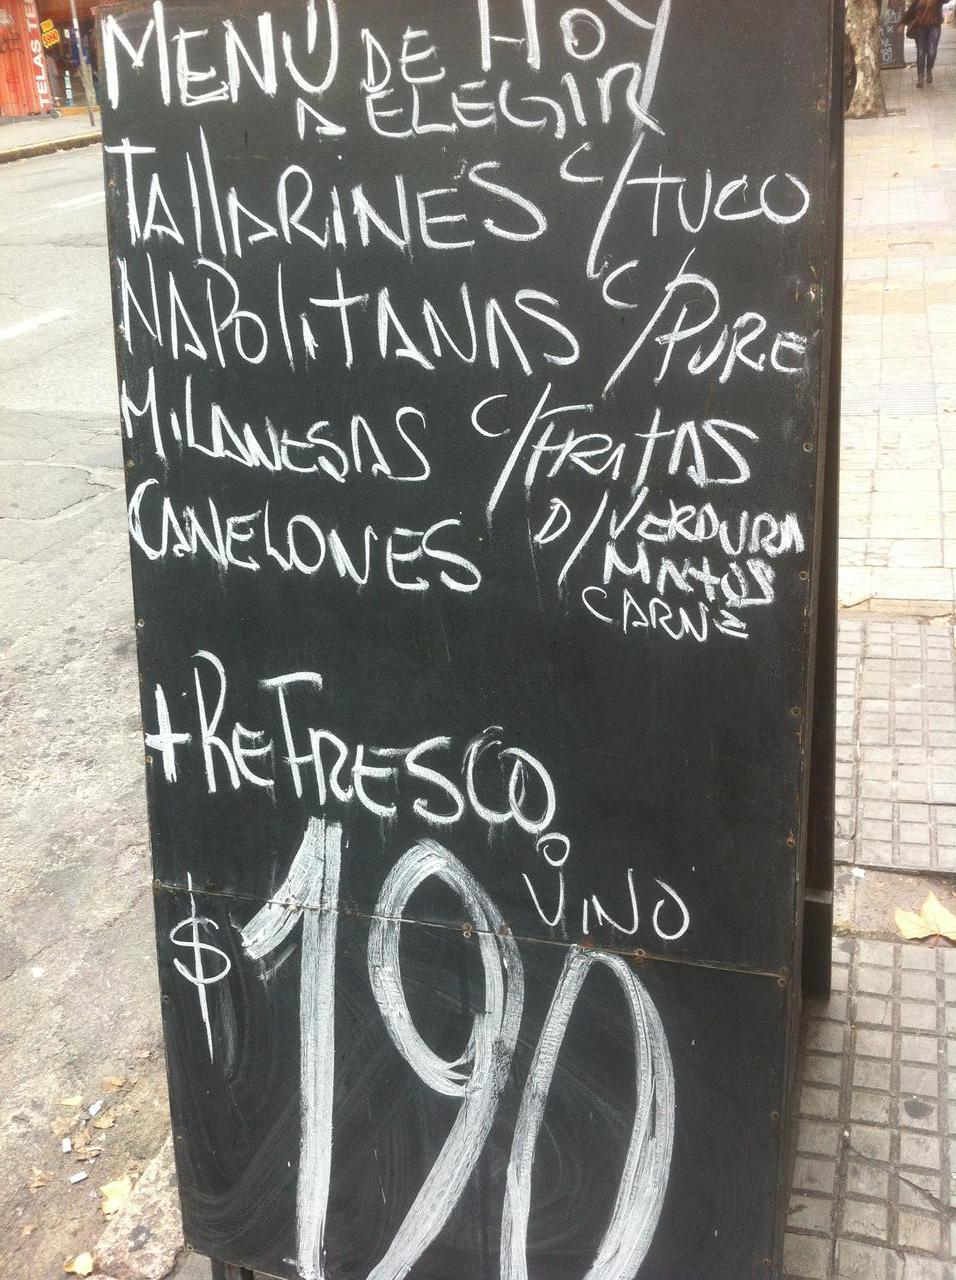 MENÚ DE HOY
A ELEGIR
TALLARINES C/TUCO
NAPOLITANAS C/PURE
MILANESAS C/FRITAS
CANELONES D/VERDURA
MIXTOS
CARNE
+ REFRESCO
O
VINO
$190
TELAS